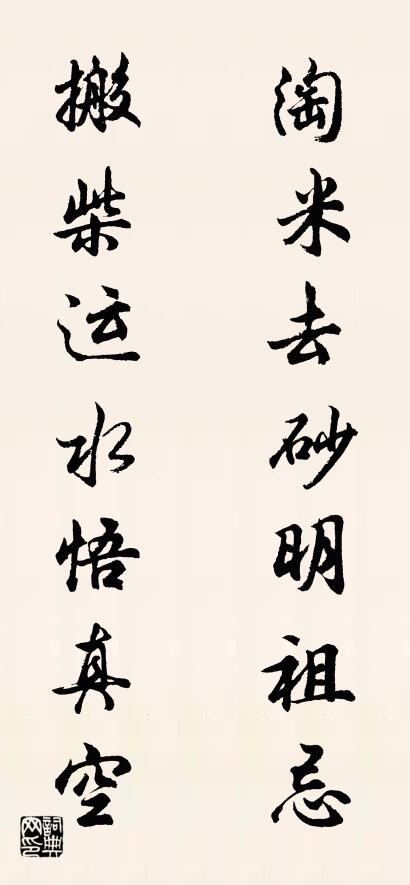 淘米去砂明祖忌
搬柴运水悟真空
词典网印